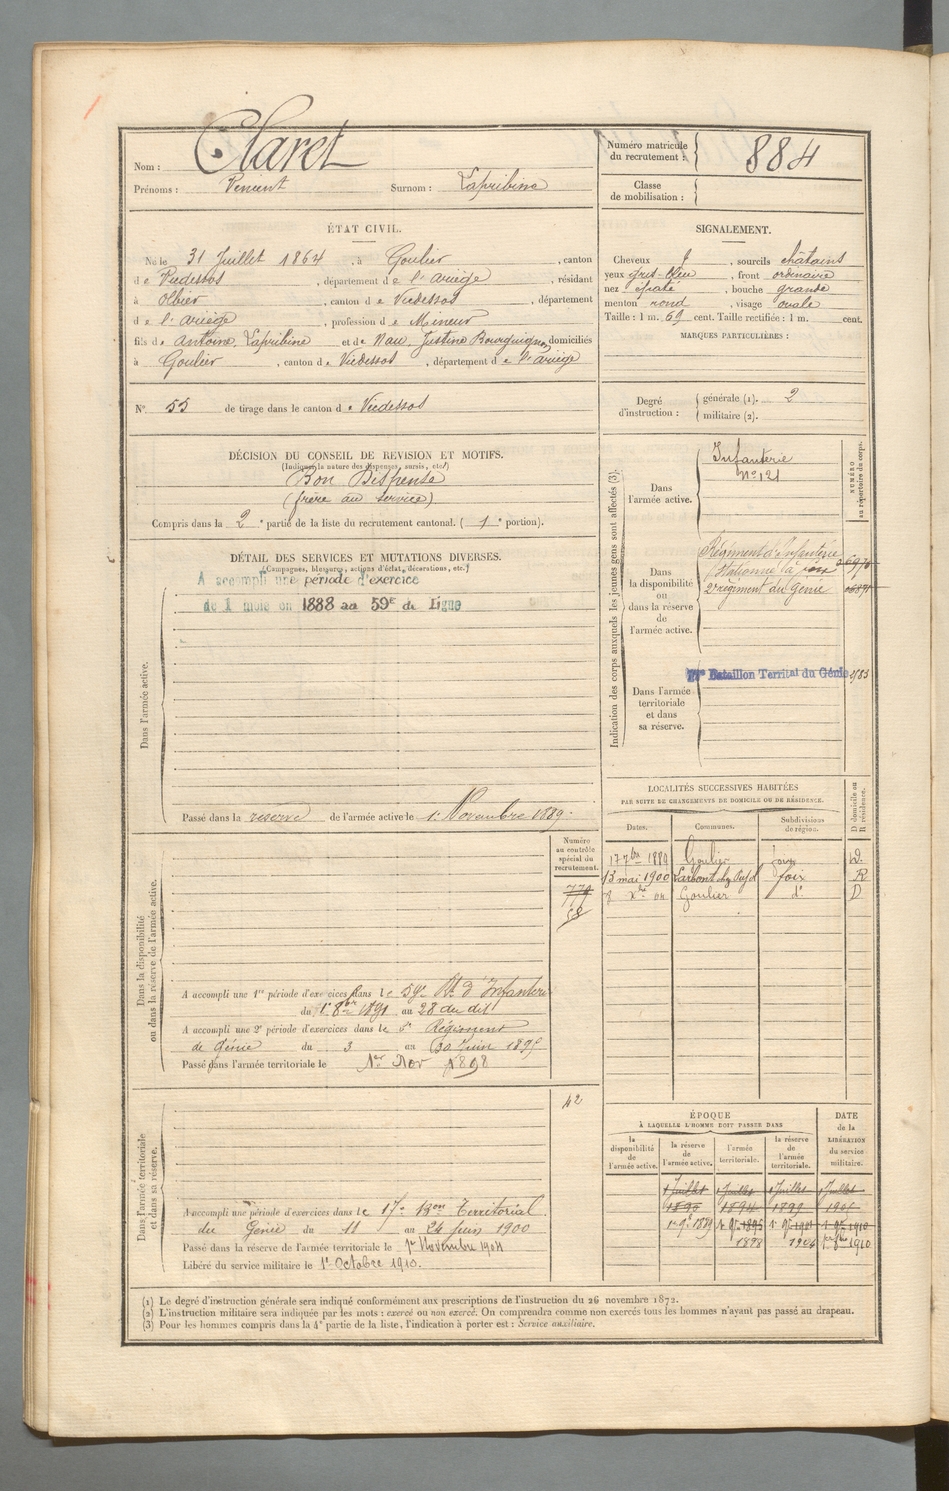 Nom : Claret
Prénoms : Vincent Surnom : Lapribine
Numéro matricule du recrutement : 884
Classe de mobilisation :
ÉTAT CIVIL.
Né le 31 Juillet 1864, à Goulier, canton
de Vicdessos, département de l'Ariège, résidant
à Olbier, canton de Vicdessos, département
de l'Ariège, profession de Mineur
fils de Antoine, Lapribine et de Nau, Justine Bourguignon, domiciliés
à Goulier, canton de Vicdessos, département de l'Ariège
N° 55 de tirage dans le canton de Vicdessos
SIGNALEMENT.
Cheveux , sourcils châtains
yeux gris-bleu, front ordinaire
nez épaté, bouche grande
menton rond, visage ovale
Taille : 1 m. 69 cent. Taille rectifiée : 1 m. cent.
MARQUES PARTICULIÈRES :
Degré d'instruction : générale (1). 2
militaire (2).
DÉCISION DU CONSEIL DE REVISION ET MOTIFS.
(Indiquer la nature des dispenses, sursis, etc.)
Bon Dispensé
(frère au service)
Compris dans la 2e partie de la liste du recrutement cantonal. ( 1e portion).
DÉTAIL DES SERVICES ET MUTATIONS DIVERSES.
(Campagnes, blessures, actions d'éclat, décorations, etc.)
Dans l'armée active.
A accompli une période d'exercice
de 1 mois en 1888 au 59e de Ligne
Passé dans la réserve de l'armée active le 1er Novembre 1889.
Indication des corps auxquels les jeunes gens sont affectés (3).
NUMÉRO au répertoire du corps.
Dans l'armée active.
Infanterie
N° 121
Dans la disponibilité ou dans la réserve de l'armée active.
Régiment d'Infanterie
(Stationné à Foix
2e régiment du Génie
Dans l'armée territoriale et dans sa réserve.
Bataillon Territal du Génie 1783
LOCALITÉS SUCCESSIVES HABITÉES
PAR SUITE DE CHANGEMENTS DE DOMICILE OU DE RÉSIDENCE.
Dates. Communes. Subdivisions de région. D domicile ou R résidence.
17 7bre 1889 Goulier Foix D.
13 mai 1900 Foix R
Goulier d° D
Dans la disponibilité ou dans la réserve de l'armée active.
Numéro au contrôle spécial du recrutement.
A accompli une 1re période d'exercices dans le 59e Rt d'Infanterie
du 1er 8bre 1891 au 28 du dit
A accompli une 2e période d'exercices dans le Régiment
de Génie du 3 au 30 Juin 1895
Passé dans l'armée territoriale le 1er Nov 1898
42
Dans l'armée territoriale et dans sa réserve.
A accompli une période d'exercices dans le 17e Bon Territorial
du Génie du 11 au 24 juin 1900
Passé dans la réserve de l'armée territoriale le 1er Novembre 1904
Libéré du service militaire le 1er Octobre 1910.
ÉPOQUE
À LAQUELLE L'HOMME DOIT PASSER DANS
DATE de la LIBÉRATION du service militaire.
la disponibilité de l'armée active. la réserve de l'armée active. l'armée territoriale. la réserve de l'armée territoriale.
1 Juillet 1 Juillet 1 Juillet 1 Juillet
1894 1899
1898 1904
(1) Le degré d'instruction générale sera indiqué conformément aux prescriptions de l'instruction du 26 novembre 1872.
(2) L'instruction militaire sera indiquée par les mots : exercé ou non exercé. On comprendra comme non exercés tous les hommes n'ayant pas passé au drapeau.
(3) Pour les hommes compris dans la 4e partie de la liste, l'indication à porter est : Service auxiliaire.